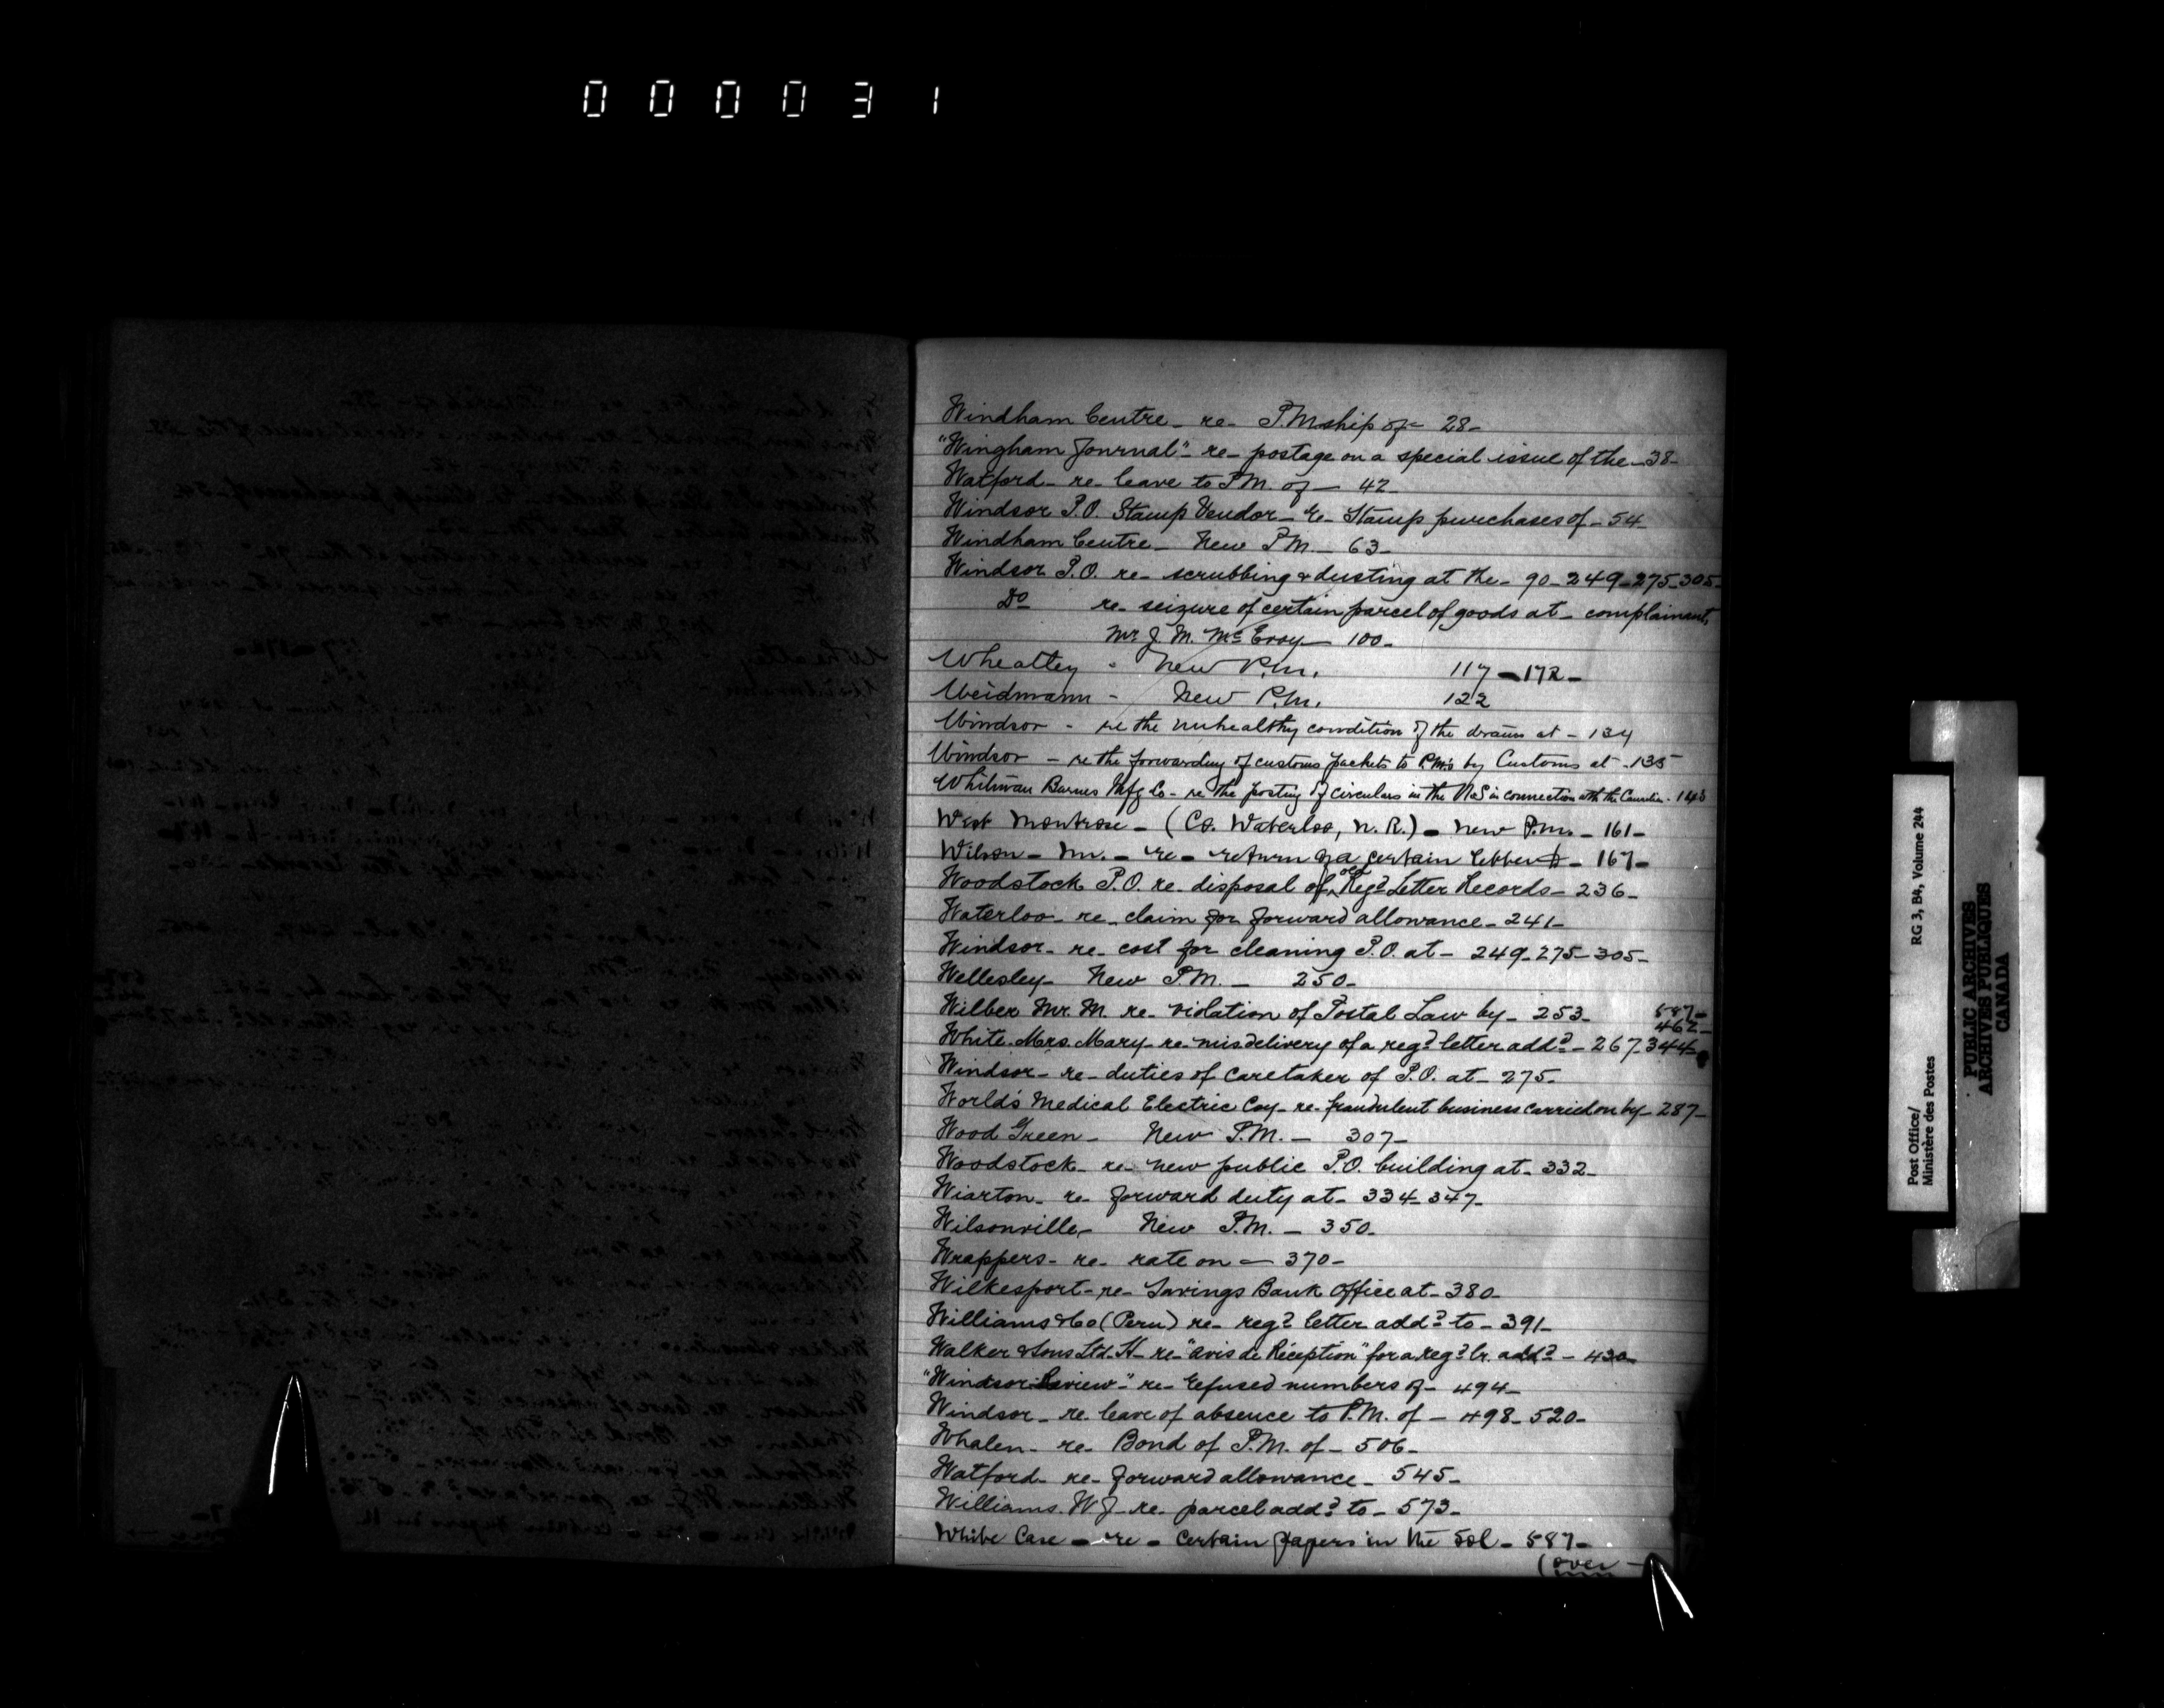 000031
Windham Centre - re - P.Mship of - 28 -
"Wingham Journal" - re - postage on a special issue of the - 38 -
Watford - re - leave to P.M. of - 42 -
Windsor P.O. Stamp Vendor - re - Stamp purchases of - 54 -
Windham Centre - New P.M. - 63 -
Windsor P.O. re - scrubbing & dusting at the - 90 - 249 - 275 - 305 -
Do re - seizure of certain parcel of goods at - complainant,
Mr J. M. McEvoy - 100 -
Wheatley - New P.M. 117 - 172 -
Weidmann - New P.M. 122
Windsor - re the unhealthy condition of the drains at - 134
Windsor - re the forwarding of customs packets to P.M's by Customs at - 135
Whitman Barnes Mfg Co - re the posting of circulars in the U.S. in connection with the Canadian - 143
West Montrose - (Co. Waterloo, N.R.) - New P.M. - 161 -
Wilson - Mr. - re - return of a certain letter to - 167 -
Woodstock P.O. re - disposal of old Regd Letter Records - 236 -
Waterloo - re - claim for forward allowance - 241 -
Windsor - re - cost for cleaning P.O. at - 249 - 275 - 305 -
Wellesley - New P.M. - 250 -
Wilber Mr. M. re - violation of Postal Law by - 253 - 587 -
462 -
White Mrs. Mary - re - misdelivery of a regd letter addd - 267 - 344 -
Windsor - re - duties of caretaker of P.O. at - 275 -
World's Medical Electric Coy - re - fraudulent business carried on by - 287 -
Wood Green - New P.M. - 307 -
Woodstock - re - new public P.O. building at - 332 -
Wiarton - re - forward duty at - 334 - 347 -
Wilsonville - New P.M. - 350 -
Wrappers - re - rate on - 370 -
Wilkesport - re - Savings Bank Office at - 380 -
Williams & Co (Peru) re - regd letter addd to - 391 -
Walker & Sons Ltd. H - re - "avis de Réception" for a regd lr. addd - 430 -
"Windsor Review" - re - refused numbers of - 494 -
Windsor - re - leave of absence to P.M. of - 498 - 520 -
Whalen - re - Bond of P.M. of - 506 -
Watford - re - forward allowance - 545 -
Williams. W J - re - parcel addd to - 573 -
White Case - re - certain papers in the - 587 -
(over -
Post Office/ RG 3, B4, Volume 244
Ministère des Postes
PUBLIC ARCHIVES
ARCHIVES PUBLIQUES
CANADA